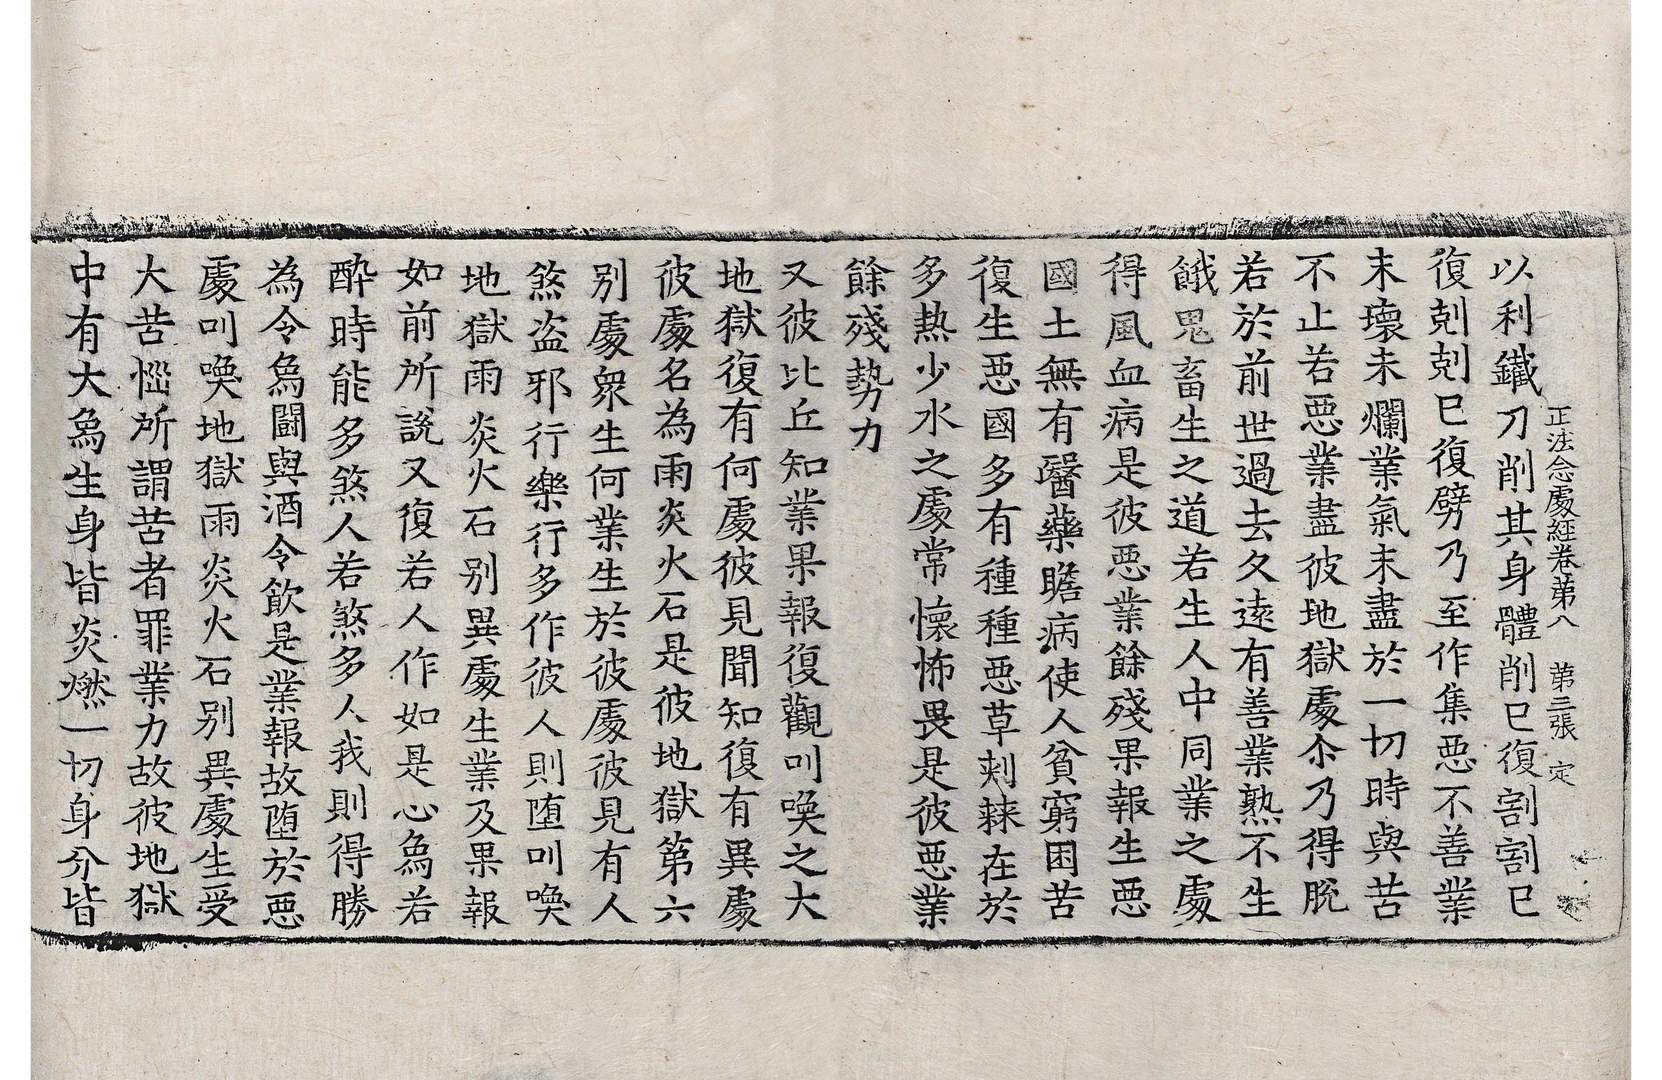 正法念處經卷第八　第三張　定
以利鐵刀削其身體削已復割割已
復剋剋已復劈乃至作集惡不善業
未壞未爛業氣未盡於一切時與苦
不止若惡業盡彼地獄處尒乃得脫
若於前世過去久遠有善業熟不生
餓鬼畜生之道若生人中同業之處
得風血病是彼惡業餘殘果報生惡
國土無有醫藥瞻病使人貧窮困苦
復生惡國多有種種惡草刺棘在於
多熱少水之處常懷怖畏是彼惡業
餘殘勢力
又彼比丘知業果報復觀叫喚之大
地獄復有何處彼見聞知復有異處
彼處名為雨炎火石是彼地獄第六
別處眾生何業生於彼處彼見有人
煞盜邪行樂行多作彼人則墮叫喚
地獄雨炎火石別異處生業及果報
如前所說又復若人作如是心鳥若
醉時能多煞人若煞多人我則得勝
為令鳥鬪與酒令飲是業報故墮於惡
處叫喚地獄雨炎火石別異處生受
大苦惱所謂苦者罪業力故彼地獄
中有大鳥生身皆炎燃一切身分皆